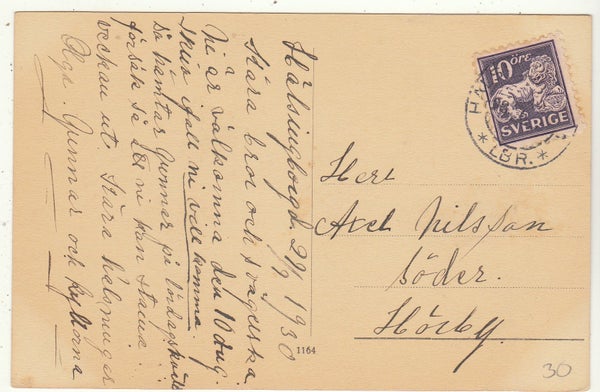 Hälsingborg d. 29/7 1930
Kära bror och svägerska
Ni är välkomna den 10 aug.
skriv ifall ni vill komma.
Så hämtar Gunnar på lördagskväll
försök så att ni kan stanna
veckan ut. Kära hälsningar
Olga. Gunnar och
Herr
Axel Nilsson
Söder.
Hörby
10 ÖRE
SVERIGE
LBR.
1164
30